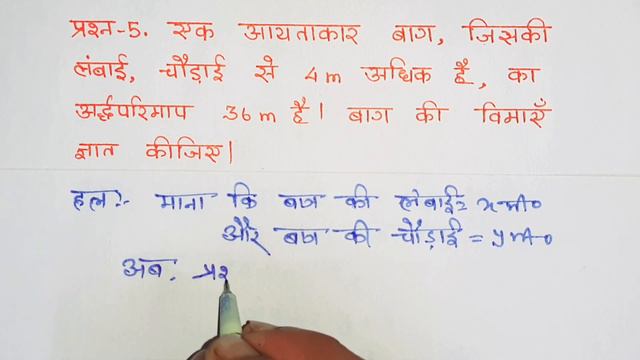 प्रश्न-5. एक आयताकार बाग, जिसकी
लंबाई, चौड़ाई से 4m अधिक है, का
अर्द्धपरिमाप 36m है। बाग की विमाएँ
ज्ञात कीजिए।
हल:- माना कि बाग की लंबाई = x मी०
और बाग की चौड़ाई = y मी०
अब, प्रश्